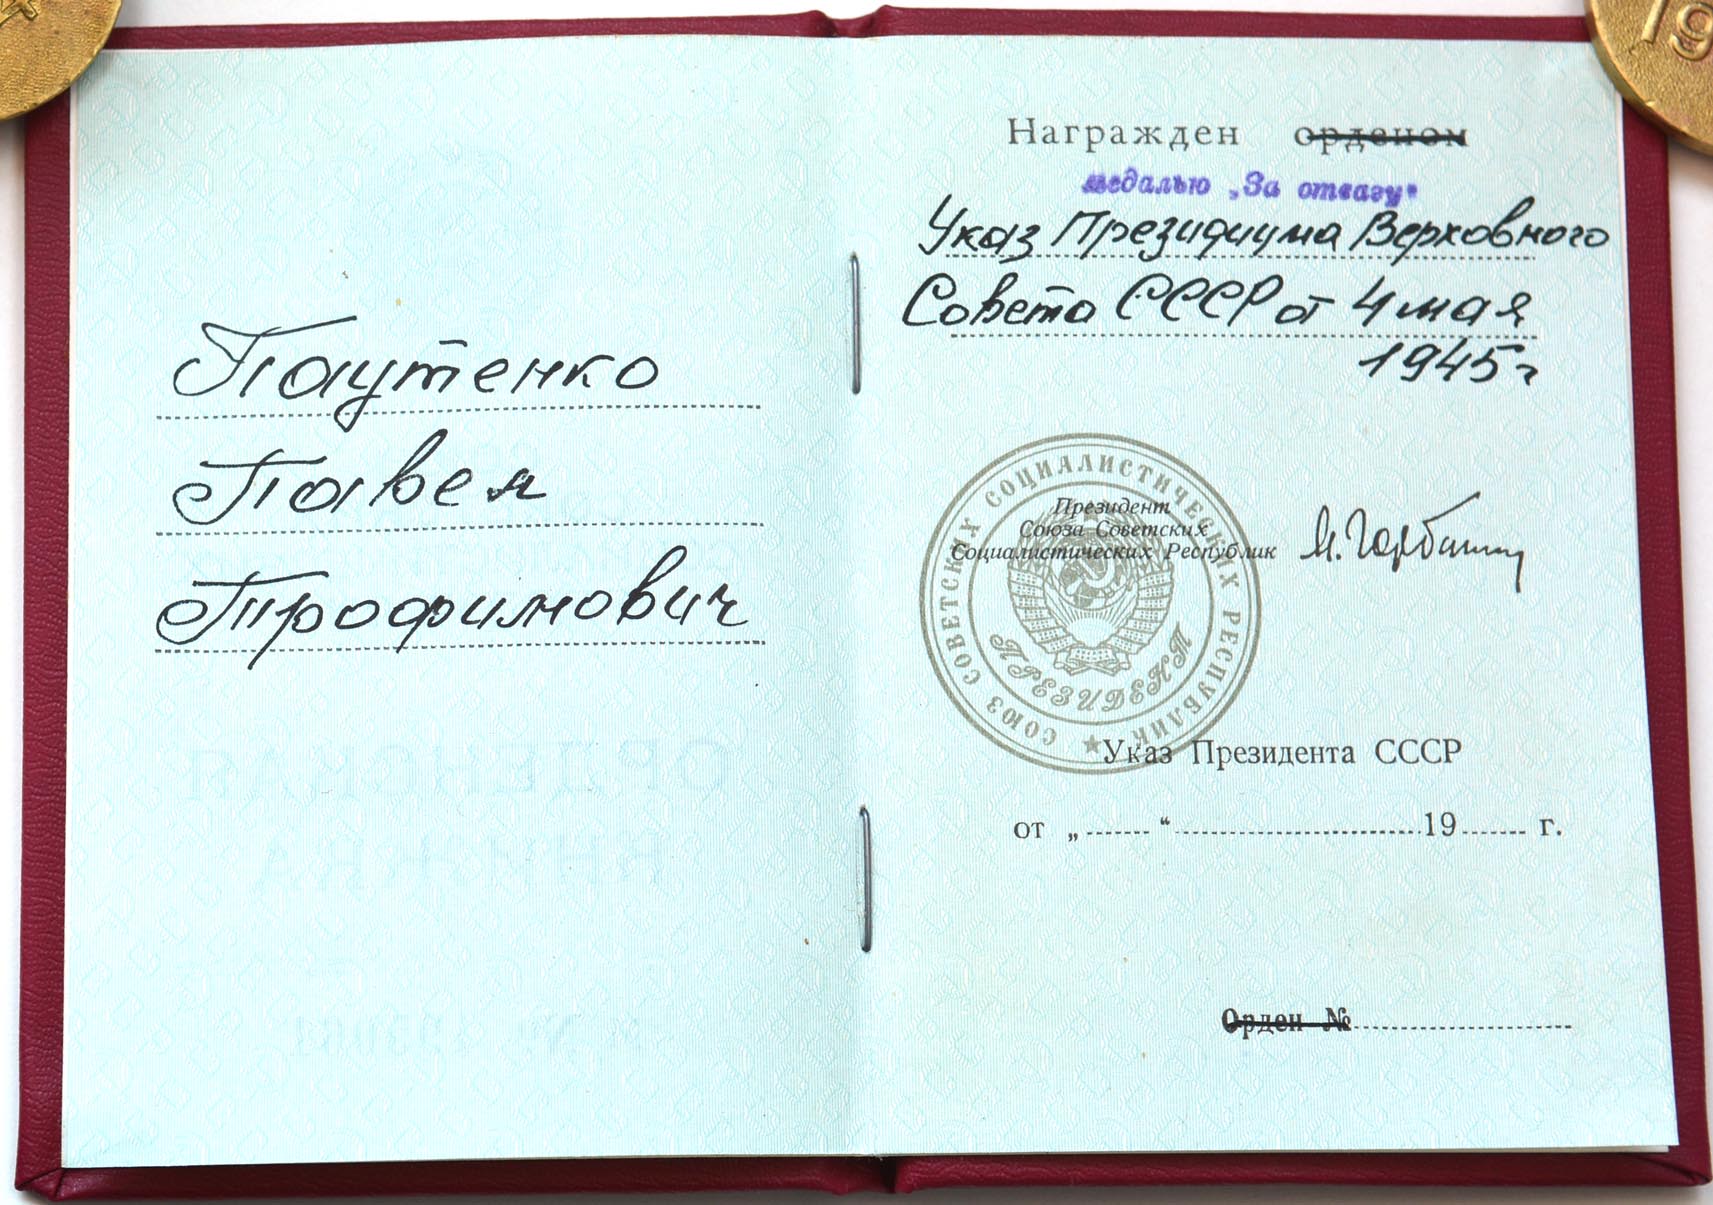 Паутенко
Павел
Трофимович
Награжден орденом
медалью „За отвагу"
Указ Президиума Верховного
Совета СССР от 4 мая
1945 г
СОЮЗ СОВЕТСКИХ СОЦИАЛИСТИЧЕСКИХ РЕСПУБЛИК
Президент
Союза Советских
Социалистических Республик М. Горбачев
ПРЕЗИДЕНТ
Указ Президента СССР
от „ “ 19 г.
Орден №
ОРДЕНСКАЯ
КНИЖКА
19